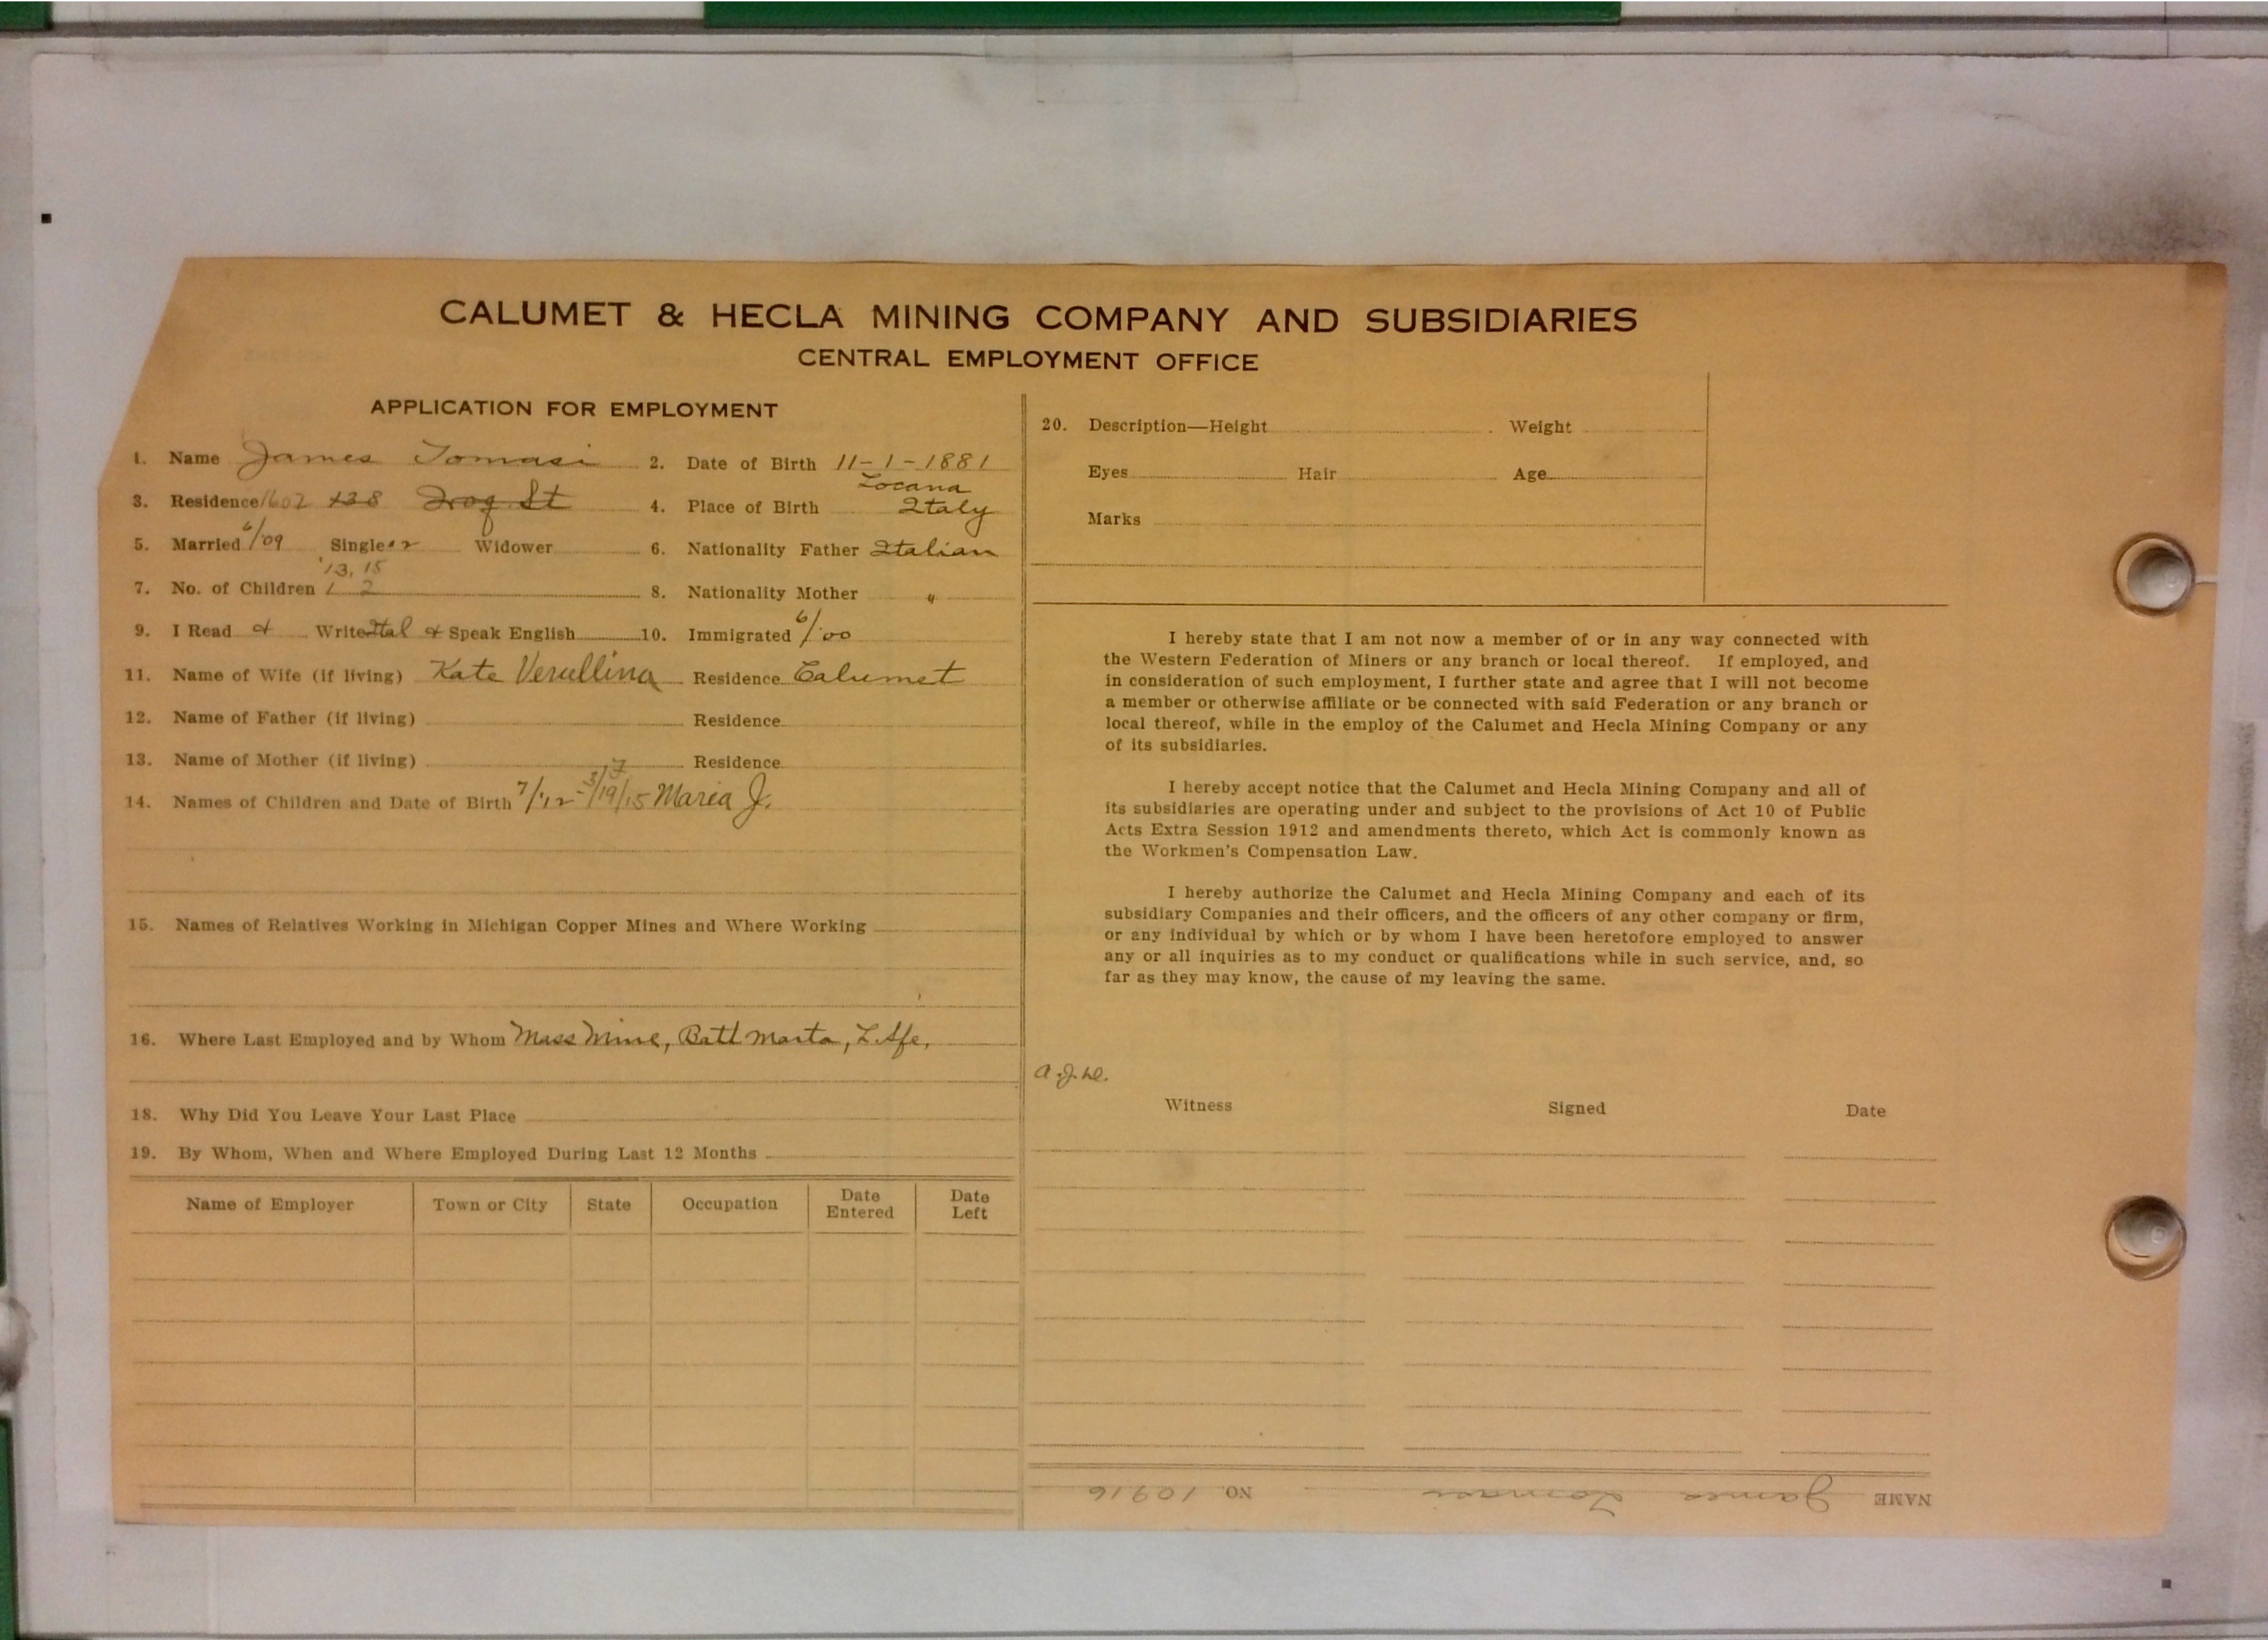 CALUMET & HECLA MINING COMPANY AND SUBSIDIARIES
CENTRAL EMPLOYMENT OFFICE
APPLICATION FOR EMPLOYMENT
1. Name James Tomasi 2. Date of Birth 11-1-1881
3. Residence 1602 438 Frog St 4. Place of Birth Locana Italy
5. Married 6/09 Single Widower 6. Nationality Father Italian
'13, 15
7. No. of Children 1 2 8. Nationality Mother "
9. I Read & Write Ital & Speak English 10. Immigrated 6/'00
11. Name of Wife (if living) Kate Residence Calumet
12. Name of Father (if living) Residence
13. Name of Mother (if living) Residence
14. Names of Children and Date of Birth 7/'12 - 3/19/15 Maria J.
15. Names of Relatives Working in Michigan Copper Mines and Where Working
16. Where Last Employed and by Whom Mass Mine,
18. Why Did You Leave Your Last Place
19. By Whom, When and Where Employed During Last 12 Months
Name of Employer Town or City State Occupation Date Entered Date Left
20. Description—Height Weight
Eyes Hair Age
Marks
I hereby state that I am not now a member of or in any way connected with
the Western Federation of Miners or any branch or local thereof. If employed, and
in consideration of such employment, I further state and agree that I will not become
a member or otherwise affiliate or be connected with said Federation or any branch or
local thereof, while in the employ of the Calumet and Hecla Mining Company or any
of its subsidiaries.
I hereby accept notice that the Calumet and Hecla Mining Company and all of
its subsidiaries are operating under and subject to the provisions of Act 10 of Public
Acts Extra Session 1912 and amendments thereto, which Act is commonly known as
the Workmen's Compensation Law.
I hereby authorize the Calumet and Hecla Mining Company and each of its
subsidiary Companies and their officers, and the officers of any other company or firm,
or any individual by which or by whom I have been heretofore employed to answer
any or all inquiries as to my conduct or qualifications while in such service, and, so
far as they may know, the cause of my leaving the same.
Witness Signed Date
NAME James Tomasi NO. 10916